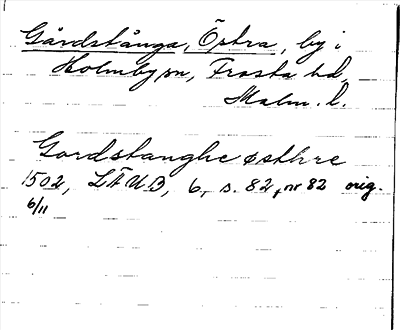 Gårdstånga, Östra, by i
Holmby sn, Frosta hd,
Malm. l.
Gordstanghe østhre
1502, LÅUB, 6, s. 82, nr 82 orig.
6/11